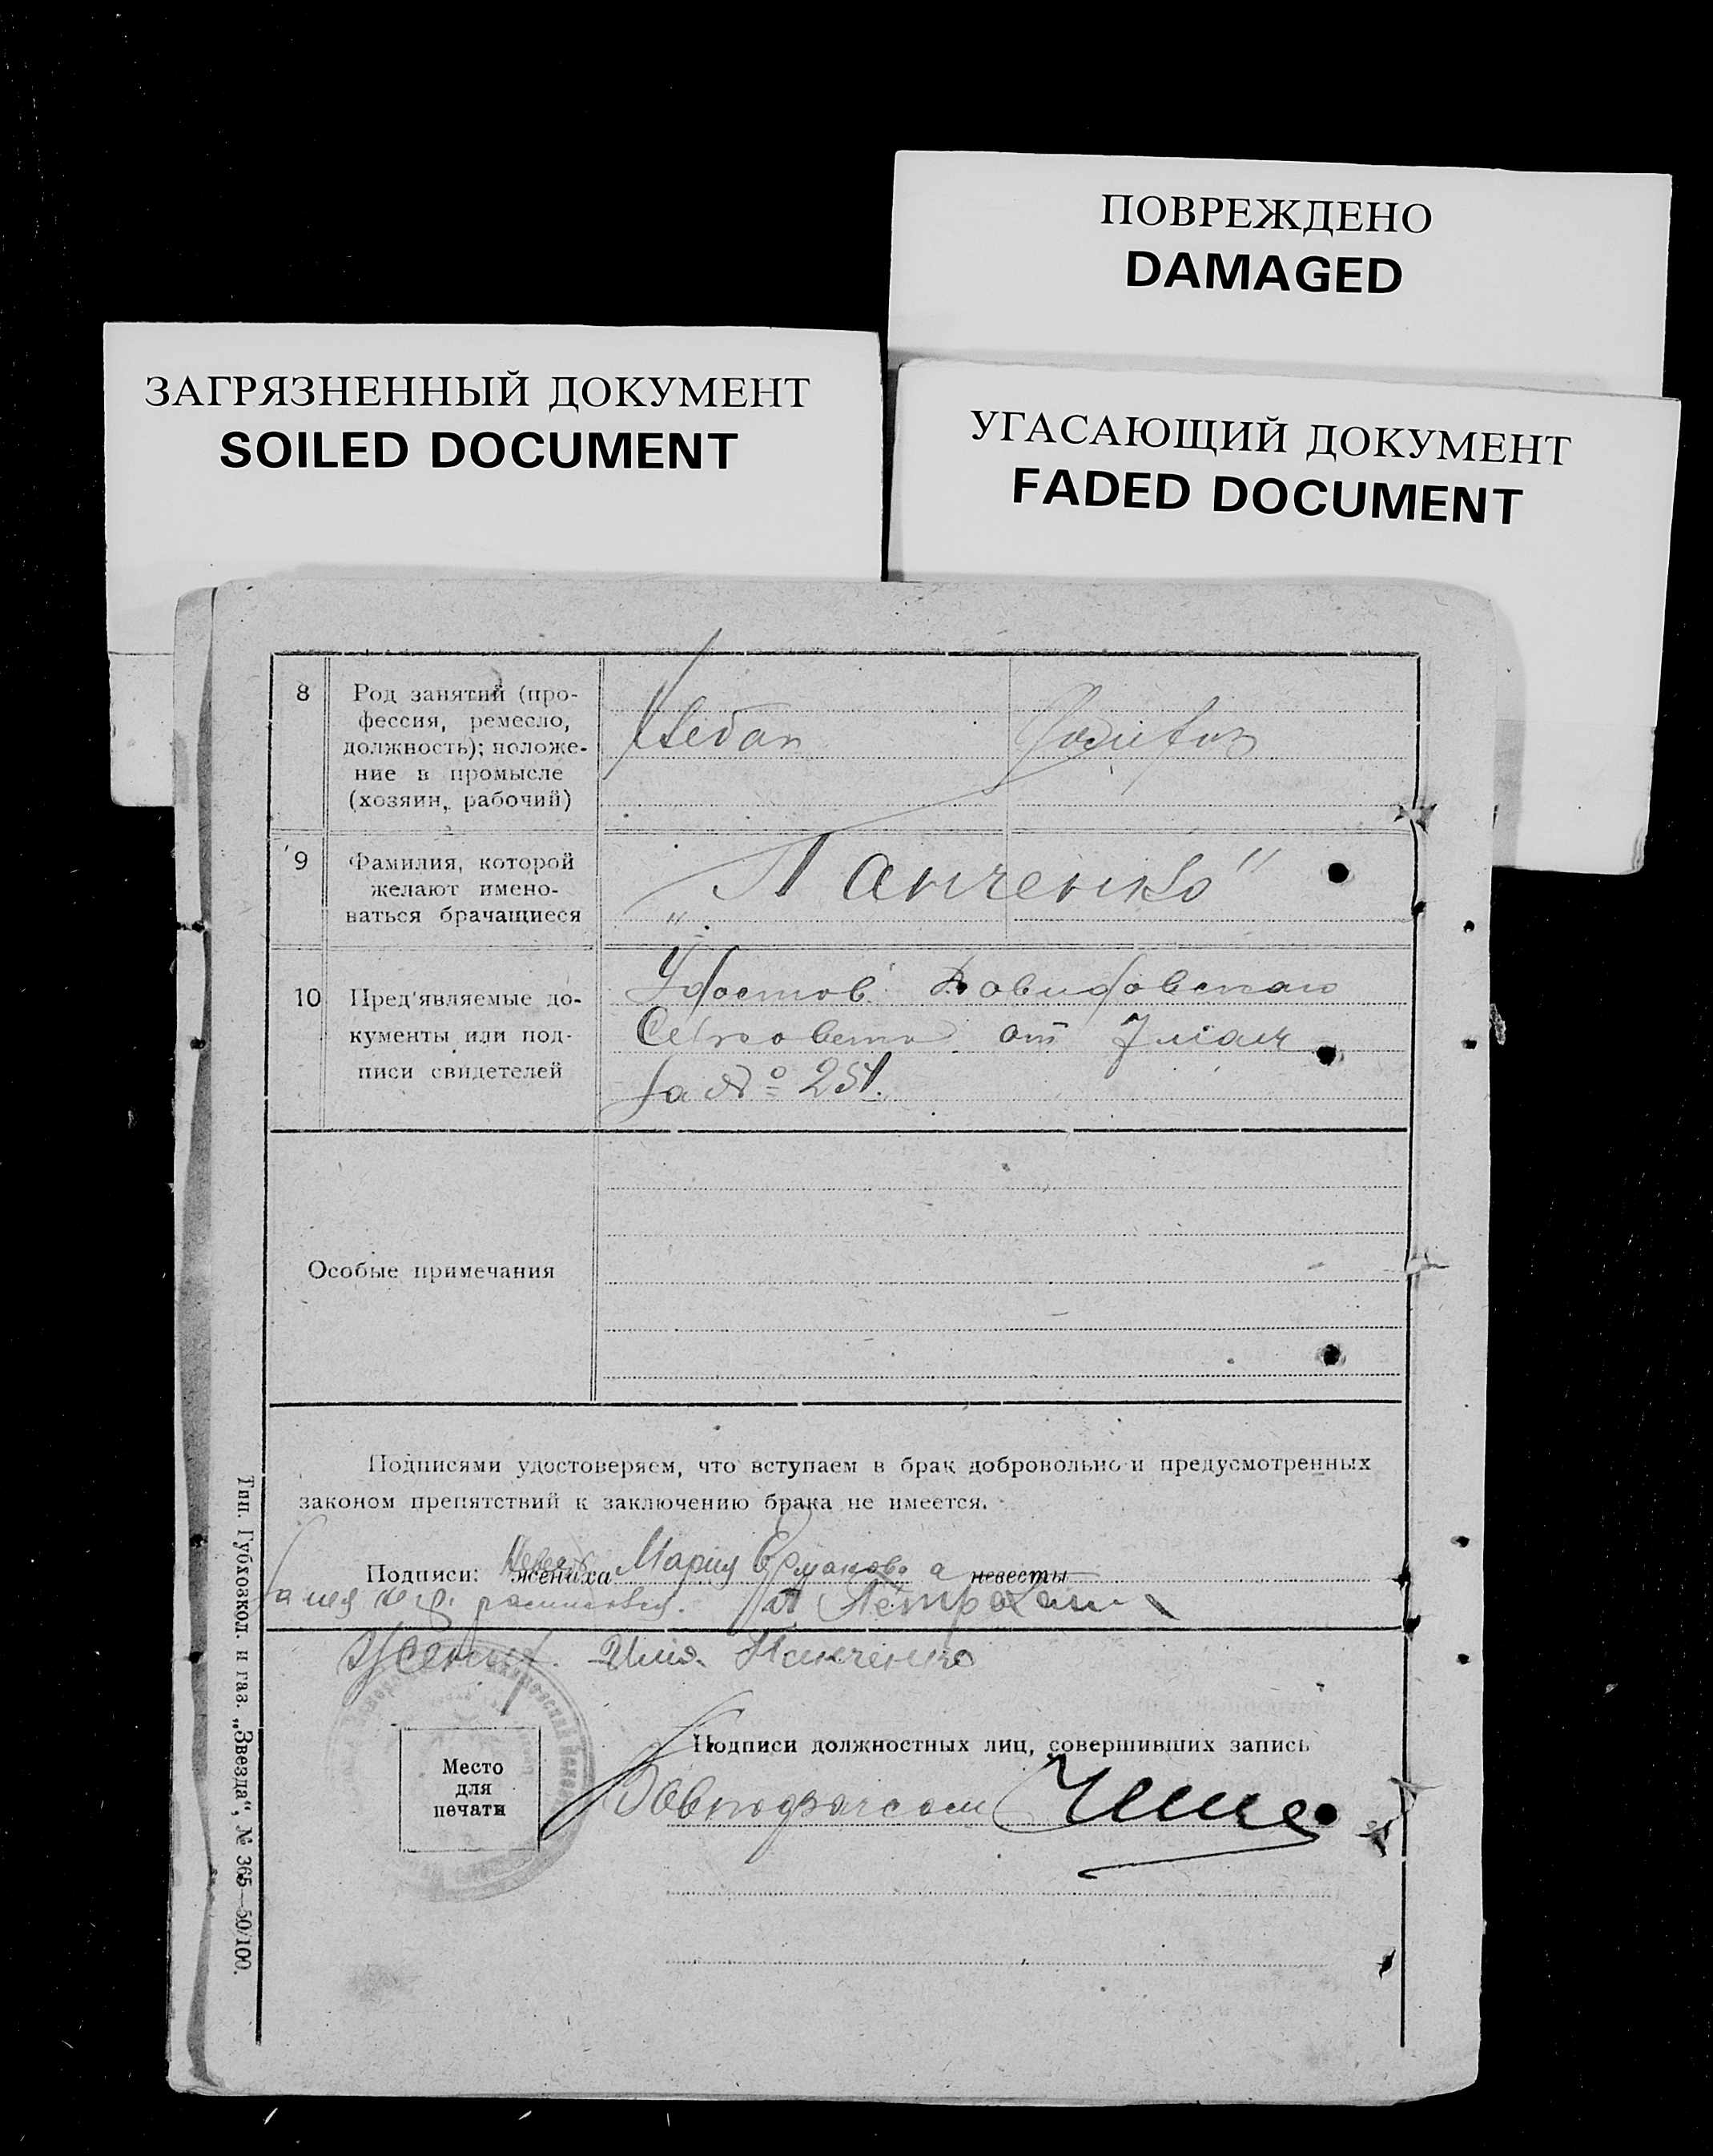 ПОВРЕЖДЕНО
DAMAGED
ЗАГРЯЗНЕННЫЙ ДОКУМЕНТ
SOILED DOCUMENT
УГАСАЮЩИЙ ДОКУМЕНТ
FADED DOCUMENT
8
Род занятий (про-
фессия, ремесло,
должность); положе-
ние в промысле
(хозяин, рабочий)
9
Фамилия, которой
желают имено-
ваться брачащиеся
„Панченко"
10
Пред'являемые до-
кументы или под-
писи свидетелей
Удостов. Давидовского
Сельсовета от 7 мая
за № 251.
Особые примечания
Подписями удостоверяем, что вступаем в брак добровольно и предусмотренных
законом препятствий к заключению брака не имеется.
Подписи: жениха Мария Ермакова а невесты
за нея негр. расписался.
Жених. Панченко
Место
для
печати
Подписи должностных лиц, совершивших запись
Тип. Губхозкол. и газ. „Звезда", № 365—50/100.